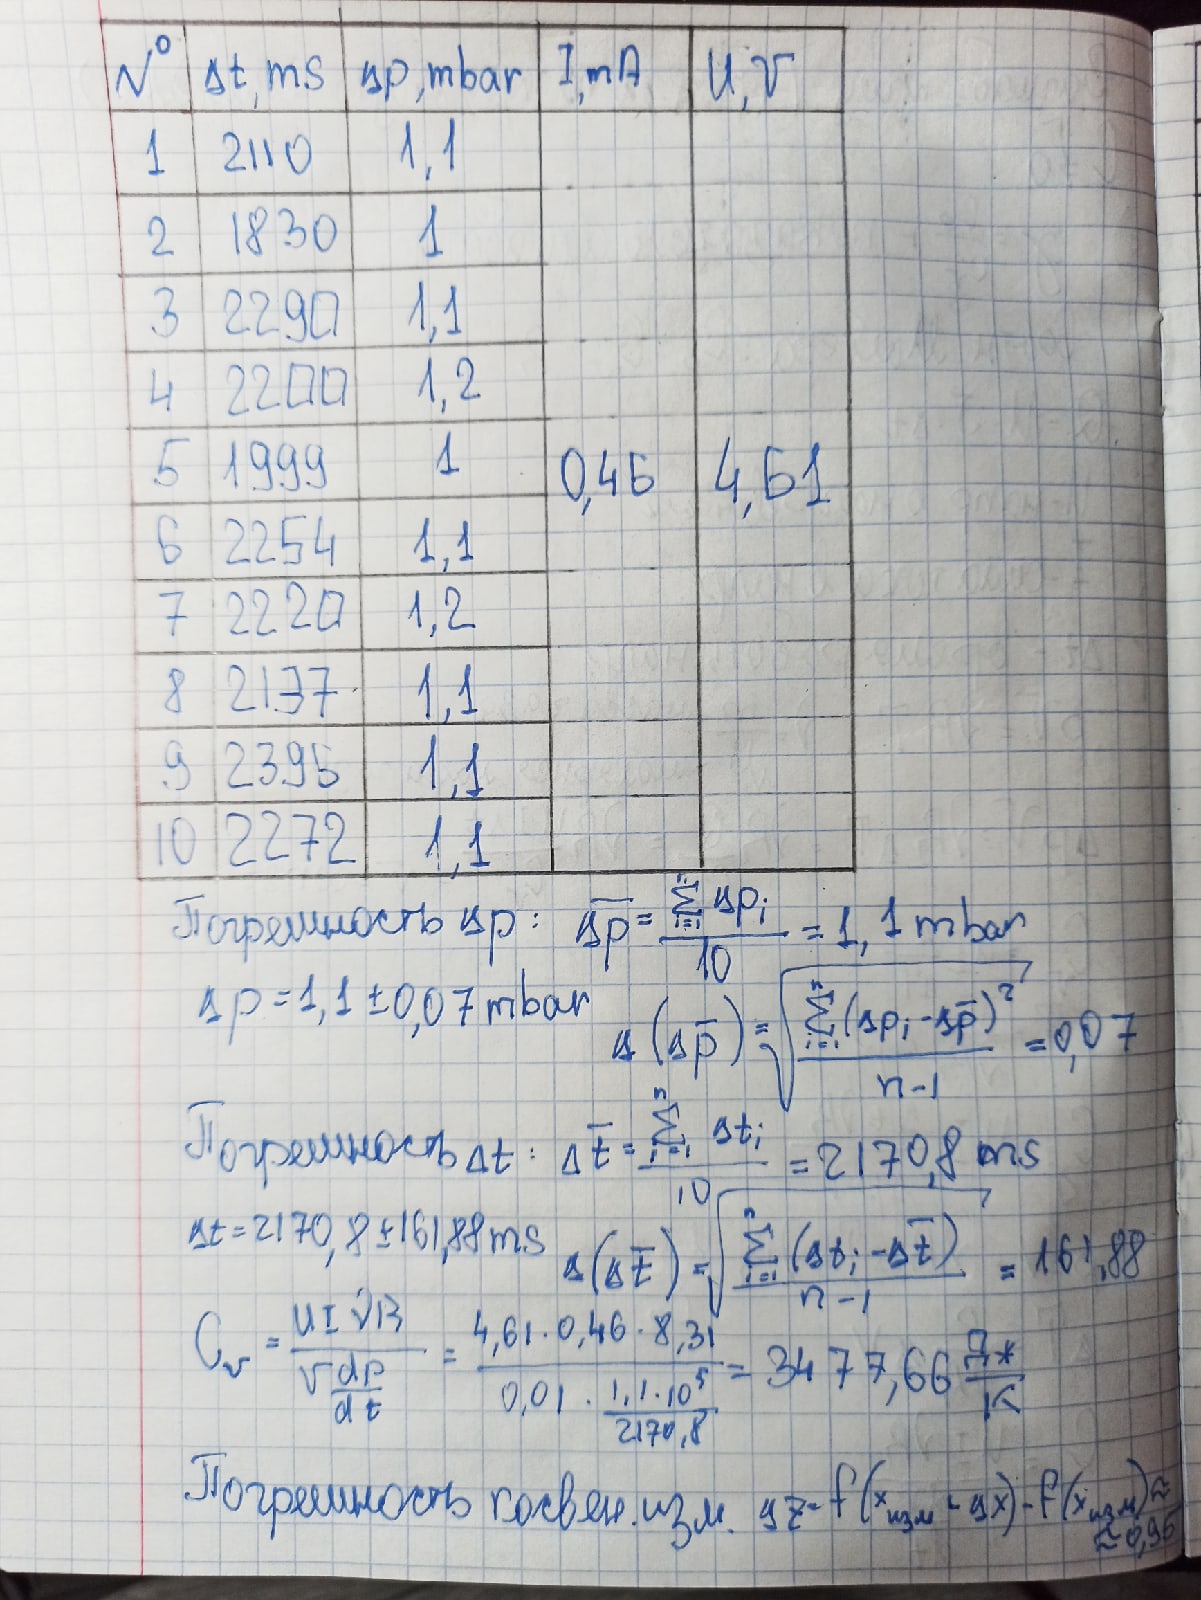 N° Δt, ms Δp, mbar I, mA U, V
1 2110 1,1
2 1830 1
3 2290 1,1
4 2200 1,2
5 1999 1 0,46 4,61
6 2254 1,1
7 2220 1,2
8 2137 1,1
9 2395 1,1
10 2272 1,1
Погрешность Δp: Δp̅ = Σⁿᵢ₌₁ Δpᵢ / 10 = 1,1 mbar
Δp = 1,1 ± 0,07 mbar Δ(Δp̅) = √(Σⁿᵢ₌₁ (Δpᵢ - Δp̅)² / n-1) = 0,07
Погрешность Δt: Δt̅ = Σⁿᵢ₌₁ Δtᵢ / 10 = 2170,8 ms
Δt = 2170,8 ± 161,88 ms Δ(Δt̅) = √(Σⁿᵢ₌₁ (Δtᵢ - Δt̅) / n-1) = 161,88
Cᵥ = UI νR / V dp/dt = 4,61 · 0,46 · 8,31 / 0,01 · 1,1·10⁵/2170,8 = 3477,66 Дж/К
Погрешность косвен. изм. Δz = f(xизм - Δx) - f(xизм) ≈
≈ 0,96